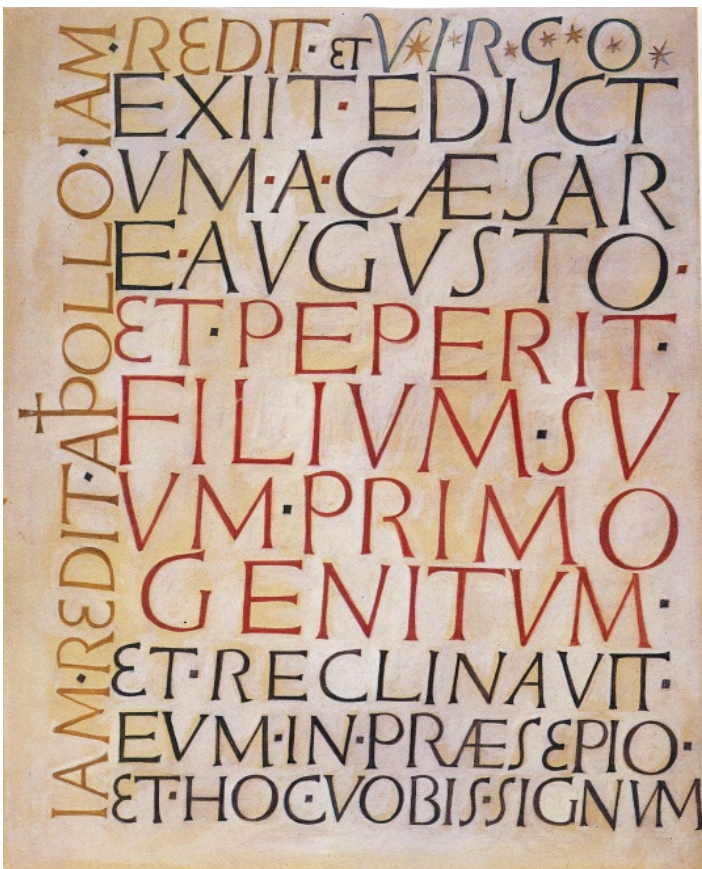 IAM·REDIT·APOLLO·IAM·
REDIT· ET V*IR*GO*
EXIIT·EDICT
VM·A·CÆSAR
E·AVGVSTO·
ET·PEPERIT·
FILIVM·SV
VM·PRIMO
GENITVM·
ET·RECLINAVIT·
EVM·IN·PRÆSEPIO·
ET·HOC·VOBIS·SIGNVM